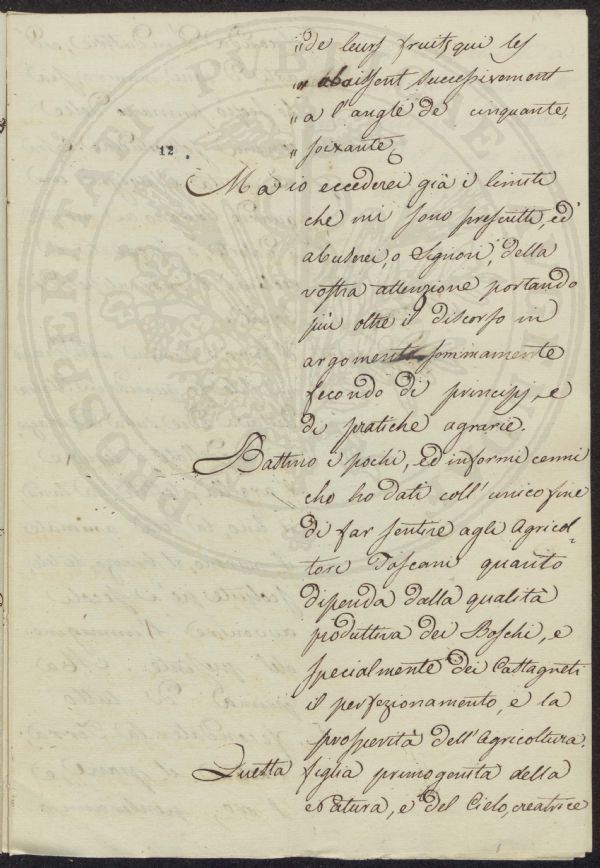 "de leurs fruits qui les
" abaissent successivement
" a l'angle de cinquante,
" soixante
12.
Ma io eccederei già i limiti
che mi sono prescritti, ed
abuserei, o Signori, della
vostra attenzione portando
più oltre il discorso in
argomento sommamente
fecondo di principj, e
di pratiche agrarie.
Bastino i pochi, ed informi cenni
che ho dati coll'unico fine
di far sentire agli Agricol-
tori Toscani quanto
dipenda dalla qualità
produttiva dei Boschi, e
specialmente dei Castagneti
il perfezionamento, e la
prosperità dell'Agricoltura.
Questa figlia primogenita della
Natura, e del Cielo, creatrice